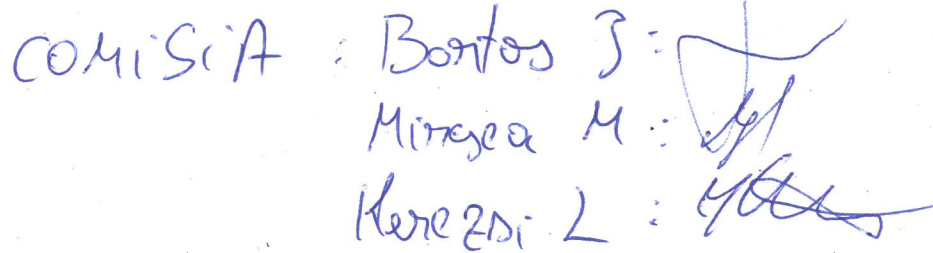 COMiSiA : Bartos J :
Mircea M :
Kerezsi L :